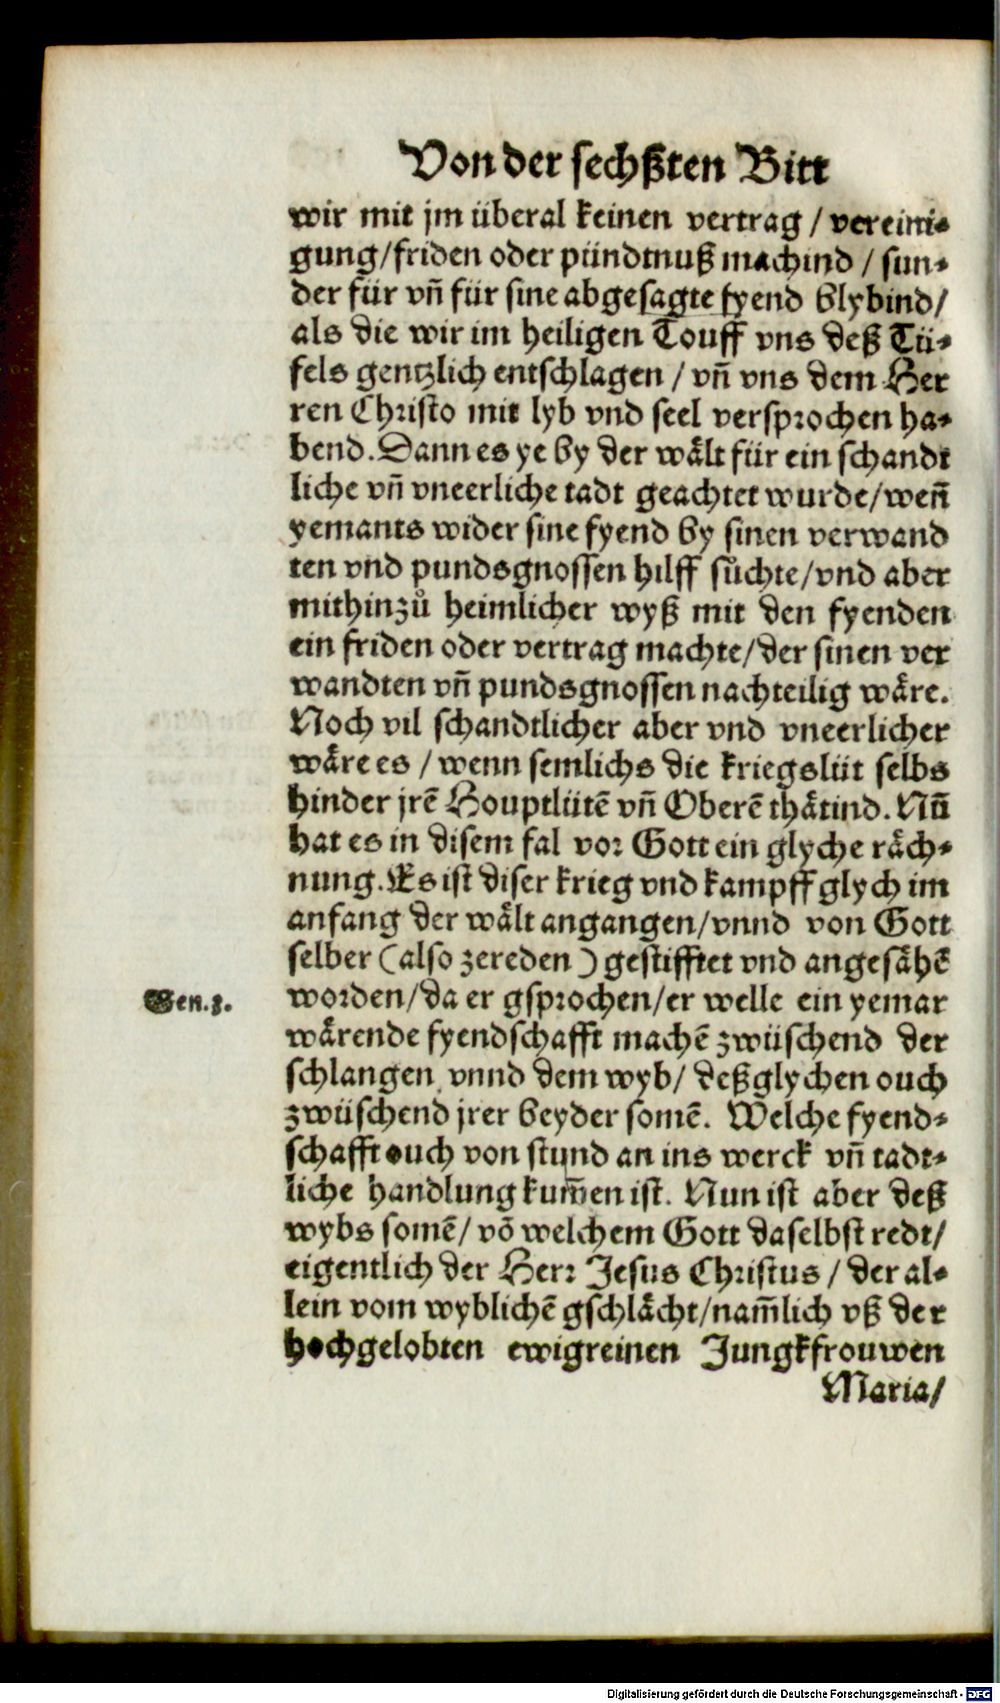 Von der sechßten Bitt
wir mit jm überal keinen vertrag / vereini⸗
gung/friden oder pündtnuß machind / sun⸗
der für vñ für sine abgesagte fyend blybind/
als die wir im heiligen Touff vns deß Tü⸗
fels gentzlich entschlagen / vñ vns dem Her
ren Christo mit lyb vnd seel versprochen ha⸗
bend. Dann es ye by der wält für ein schandt
liche vñ vneerliche tadt geachtet wurde/weñ
yemants wider sine fyend by sinen verwand
ten vnd pundsgnossen hilff sůchte/vnd aber
mithinzů heimlicher wyß mit den fyenden
ein friden oder vertrag machte/der sinen ver
wandten vñ pundsgnossen nachteilig wäre.
Noch vil schandtlicher aber vnd vneerlicher
wäre es / wenn semlichs die kriegslüt selbs
hinder jrē Houptlütē vñ Oberē thätind. Nū
hat es in disem fal vor Gott ein glyche räch⸗
nung. Es ist diser krieg vnd kampff glych im
anfang der wält angangen/vnnd von Gott
selber (also zereden ) gestifftet vnd angesähē
Gen.3. worden/da er gsprochen/er welle ein yemar
wärende fyendschafft machē zwüschend der
schlangen vnnd dem wyb/ deßglychen ouch
zwüschend jrer beyder somē. Welche fyend⸗
schafft ouch von stund an ins werck vñ tadt⸗
liche handlung kum̄en ist. Nun ist aber deß
wybs somē/ vō welchem Gott daselbst redt/
eigentlich der Herr Jesus Christus / der al⸗
lein vom wyblichē gschlächt/nam̄lich vß der
hochgelobten ewigreinen Jungkfrouwen
Maria/
Digitalisierung gefördert durch die Deutsche Forschungsgemeinschaft - DFG